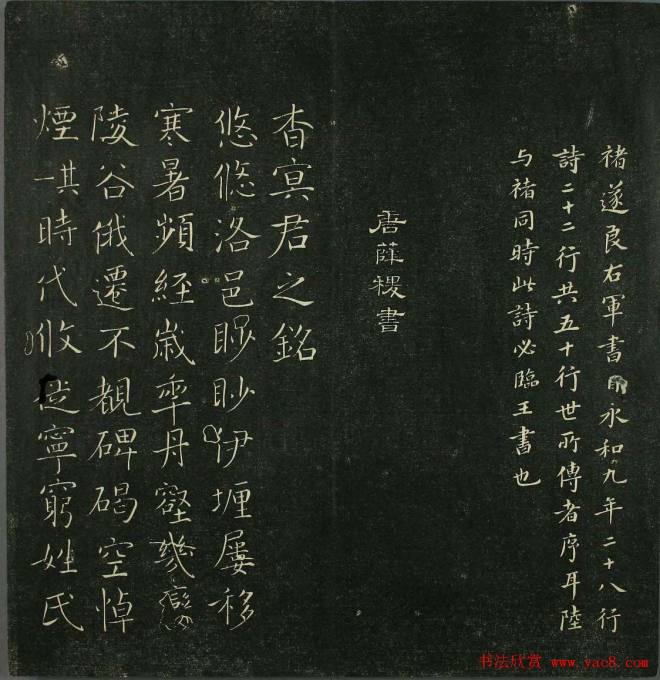 褚遂良右軍書目永和九年二十八行
詩二十二行共五十行世所傳者序耳陸
与褚同時此詩必臨王書也
唐薛稷書
杳冥君之銘
悠悠洛邑眇眇伊壥屢移
寒暑頻經歲年丹壑幾變
陵谷俄遷不覩碑碣空悼
煙埧時代攸徙寧窮姓氏
书法欣赏 www.yac8.com